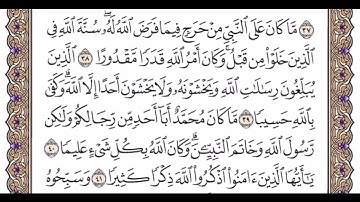 ٣٧ مَّا كَانَ عَلَى ٱلنَّبِيِّ مِنْ حَرَجٍ فِيمَا فَرَضَ ٱللَّهُ لَهُۥ سُنَّةَ ٱللَّهِ فِي
ٱلَّذِينَ خَلَوْا۟ مِن قَبْلُ وَكَانَ أَمْرُ ٱللَّهِ قَدَرًا مَّقْدُورًا ٣٨ ٱلَّذِينَ
يُبَلِّغُونَ رِسَٰلَٰتِ ٱللَّهِ وَيَخْشَوْنَهُۥ وَلَا يَخْشَوْنَ أَحَدًا إِلَّا ٱللَّهَ وَكَفَىٰ
بِٱللَّهِ حَسِيبًا ٣٩ مَّا كَانَ مُحَمَّدٌ أَبَآ أَحَدٍ مِّن رِّجَالِكُمْ وَلَٰكِن
رَّسُولَ ٱللَّهِ وَخَاتَمَ ٱلنَّبِيِّـۧنَ وَكَانَ ٱللَّهُ بِكُلِّ شَيْءٍ عَلِيمًا ٤٠
يَٰٓأَيُّهَا ٱلَّذِينَ ءَامَنُوا۟ ٱذْكُرُوا۟ ٱللَّهَ ذِكْرًا كَثِيرًا ٤١ وَسَبِّحُوهُ